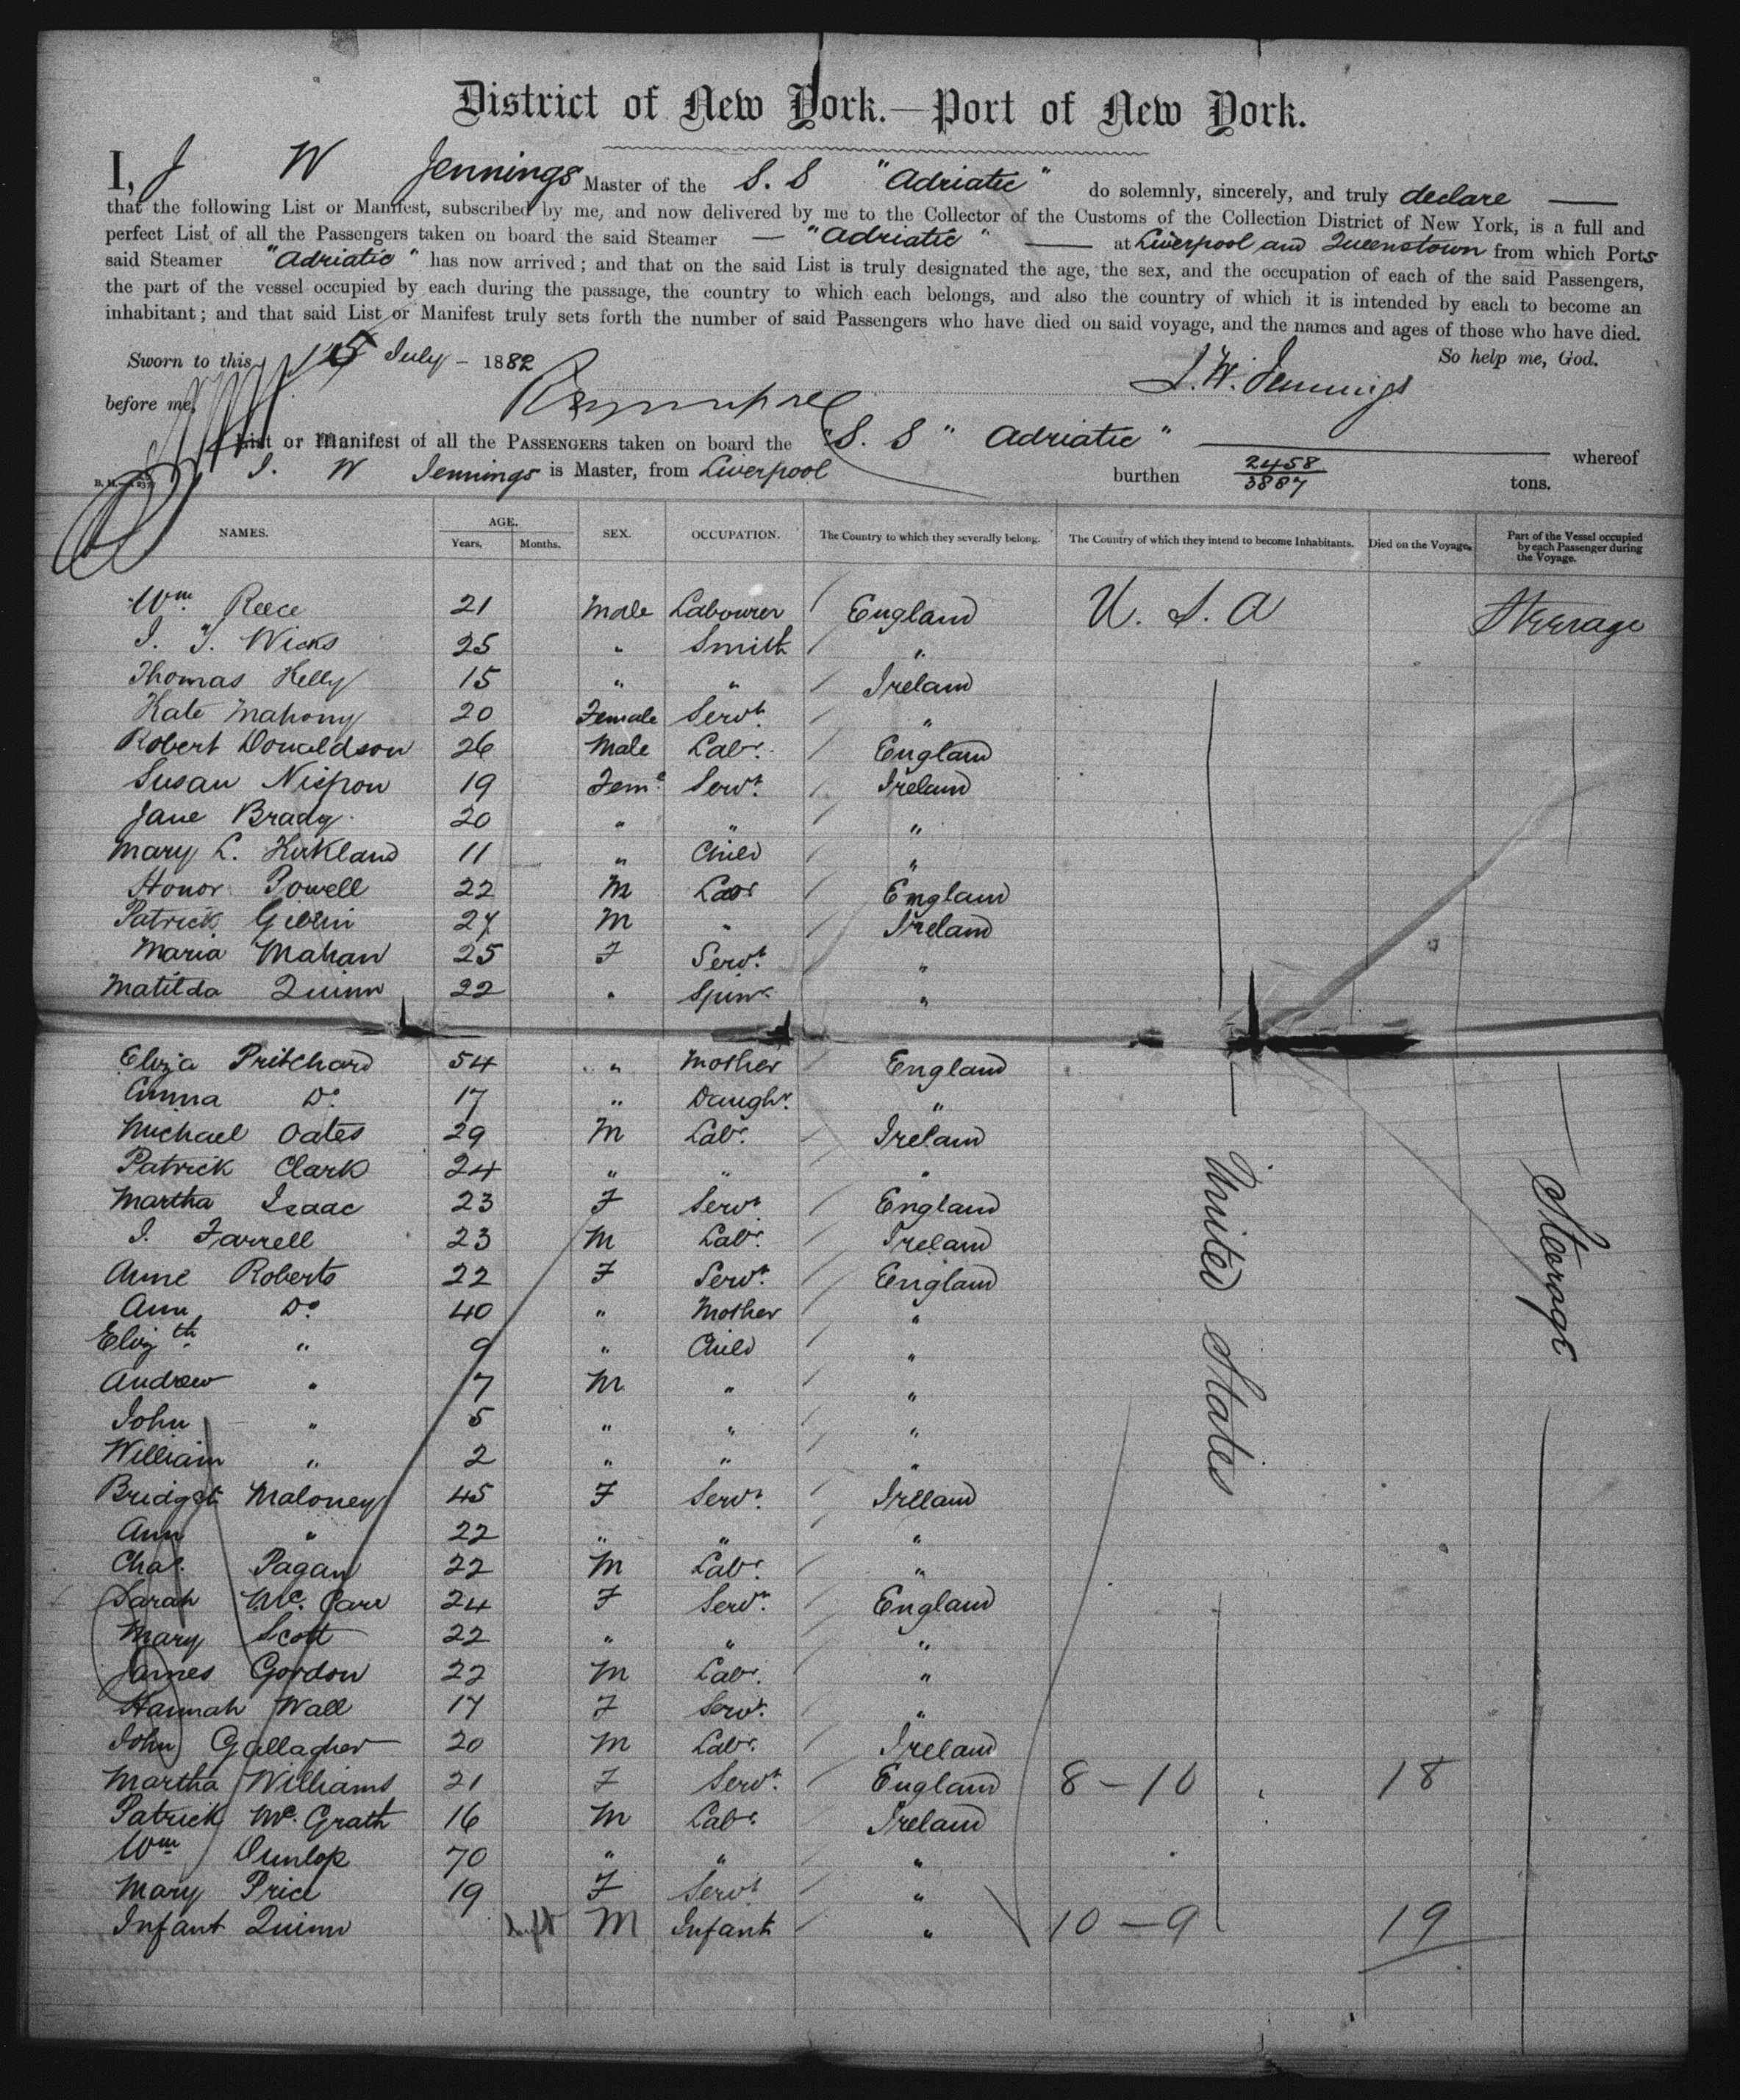 District of New York.—Port of New York.
I, J W Jennings Master of the S. S "Adriatic" do solemnly, sincerely, and truly declare
that the following List or Manifest, subscribed by me, and now delivered by me to the Collector of the Customs of the Collection District of New York, is a full and
perfect List of all the Passengers taken on board the said Steamer — "Adriatic" — at Liverpool and Queenstown from which Ports
said Steamer "Adriatic" has now arrived; and that on the said List is truly designated the age, the sex, and the occupation of each of the said Passengers,
the part of the vessel occupied by each during the passage, the country to which each belongs, and also the country of which it is intended by each to become an
inhabitant; and that said List or Manifest truly sets forth the number of said Passengers who have died on said voyage, and the names and ages of those who have died.
Sworn to this 15 July - 1882 So help me, God.
before me, J. W. Jennings
List or Manifest of all the PASSENGERS taken on board the "S. S " Adriatic " whereof
J. W Jennings is Master, from Liverpool burthen 2458 / 3887 tons.
NAMES. AGE. Years. Months. SEX. OCCUPATION. The Country to which they severally belong. The Country of which they intend to become Inhabitants. Died on the Voyage. Part of the Vessel occupied by each Passenger during the Voyage.
Wm Reece 21 Male Labourer England U. S. A Steerage
J. J. Wicks 25 " Smith "
Thomas Kelly 15 " " Ireland
Kate Mahony 20 Female Servt. "
Robert Donaldson 26 Male Labr. England
Susan Nispon 19 Feme. Servt. Ireland
Jane Brady 20 " " "
Mary L. Kirkland 11 " Child "
Honor Powell 22 M Labr England
Patrick 27 M " Ireland
Maria Mahan 25 F Servt. "
Matilda Quinn 22 " Spinr. "
Eliza Pritchard 54 " Mother England
Emma Do. 17 " Daughr. "
Michael Oates 29 M Labr. Ireland
Patrick Clark 24 " " "
Martha Isaac 23 F Servt England
J. Farrell 23 M Labr. Ireland
Anne Roberts 22 F Servt. England
Ann Do 40 " Mother "
Elizth " 9 " Child "
Andrew " 7 M " "
John " 5 " " "
William " 2 " " "
Bridget Maloney 45 F Servt. Ireland
Ann " 22 " " "
Chas. Pagan 22 M Labr. "
Sarah Mc. Carr 24 F Servt. England
Mary Scott 22 " " "
James Gordon 22 M Labr. "
Hannah Wall 17 F Servt. "
John Gallagher 20 M Labr. Ireland
Martha Williams 21 F Servt. England 8 - 10 18
Patrick Mc. Grath 16 M Labr. Ireland
Wm Dunlop 70 " " "
Mary Price 19 F Servt "
Infant Quinn M Infant " 10 - 9 19
United States
Steerage